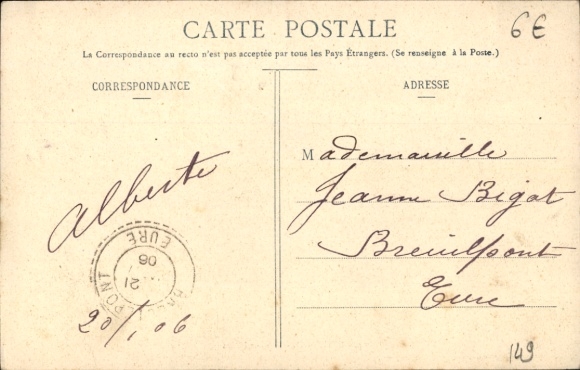 CARTE POSTALE
6€
La Correspondance au recto n'est pas acceptée par tous les Pays Étrangers. (Se renseigne à la Poste.)
CORRESPONDANCE
ADRESSE
Alberte
20/1 06
EURE
21
06
PONT
Mademoiselle
Jeanne Bigot
Breuilpont
Eure
149